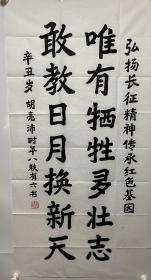 弘扬长征精神传承红色基因
唯有牺牲多壮志
敢教日月换新天
辛丑岁 胡亮沛时年八秩有六书